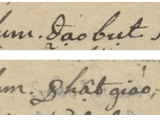 um. đạo bụt
m. phật giáo,